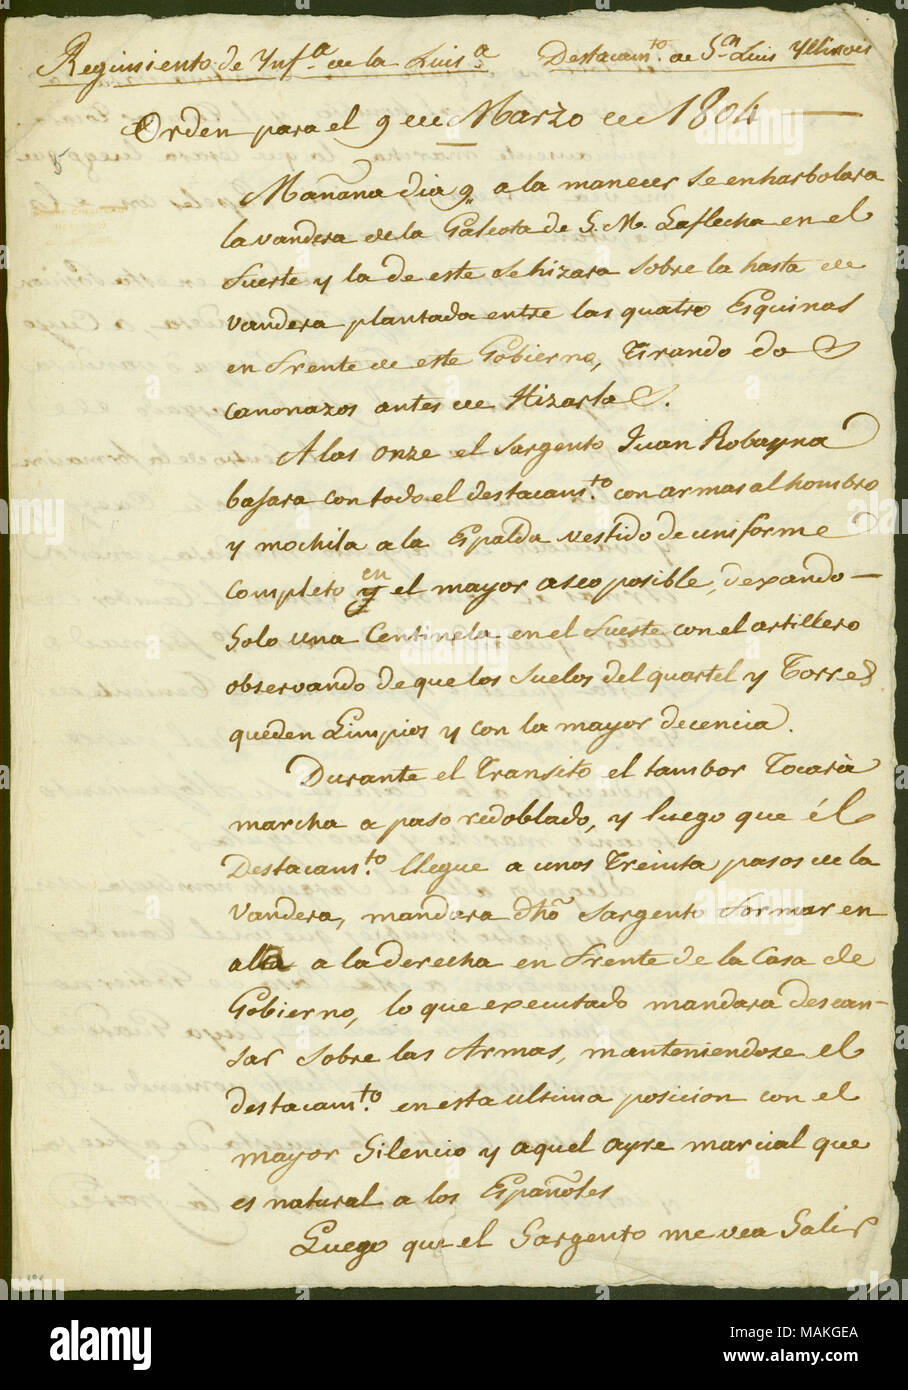 Regimiento de Ynf.ª de la Luis.ª Destacam.to de S.n Luis Yllinois
Orden para el 9 de Marzo de 1804
Mañana dia 9 a la manecer se enharbolara
la vandera de la Galeota de S. M. Laflecha en el
fuerte y la de este se hizara sobre la hasta de
vandera plantada entre las quatro Esquinas
en frente de este Gobierno, tirando do
canonazos antes de Hizarla.
A las onze el Sargento Juan Robayna
bajara con todo el destacam.to con armas al hombro
y mochila a la Espalda vestido de uniforme
completo en y el mayor aseo posible, dexando
Solo una Centinela en el fuerte con el artillero
observando de que los Suelos del quartel y Torre
queden Limpios y con la mayor decencia.
Durante el Transito el tambor Tocará
marcha a paso redoblado, y luego que él
Destacam.to llegue a unos Treinta pasos de la
Vandera, mandara dhô Sargento formar en
alla a la derecha en frente de la Casa de
Gobierno, lo que executado mandara descan-
sar Sobre las Armas, manteniendose el
destacam.to en esta ultima posicion con el
mayor Silencio y aquel ayre marcial que
es natural a los Españoles
Luego que el Sargento me vea Salir
alamy
Image ID: MAKGEA
www.alamy.com